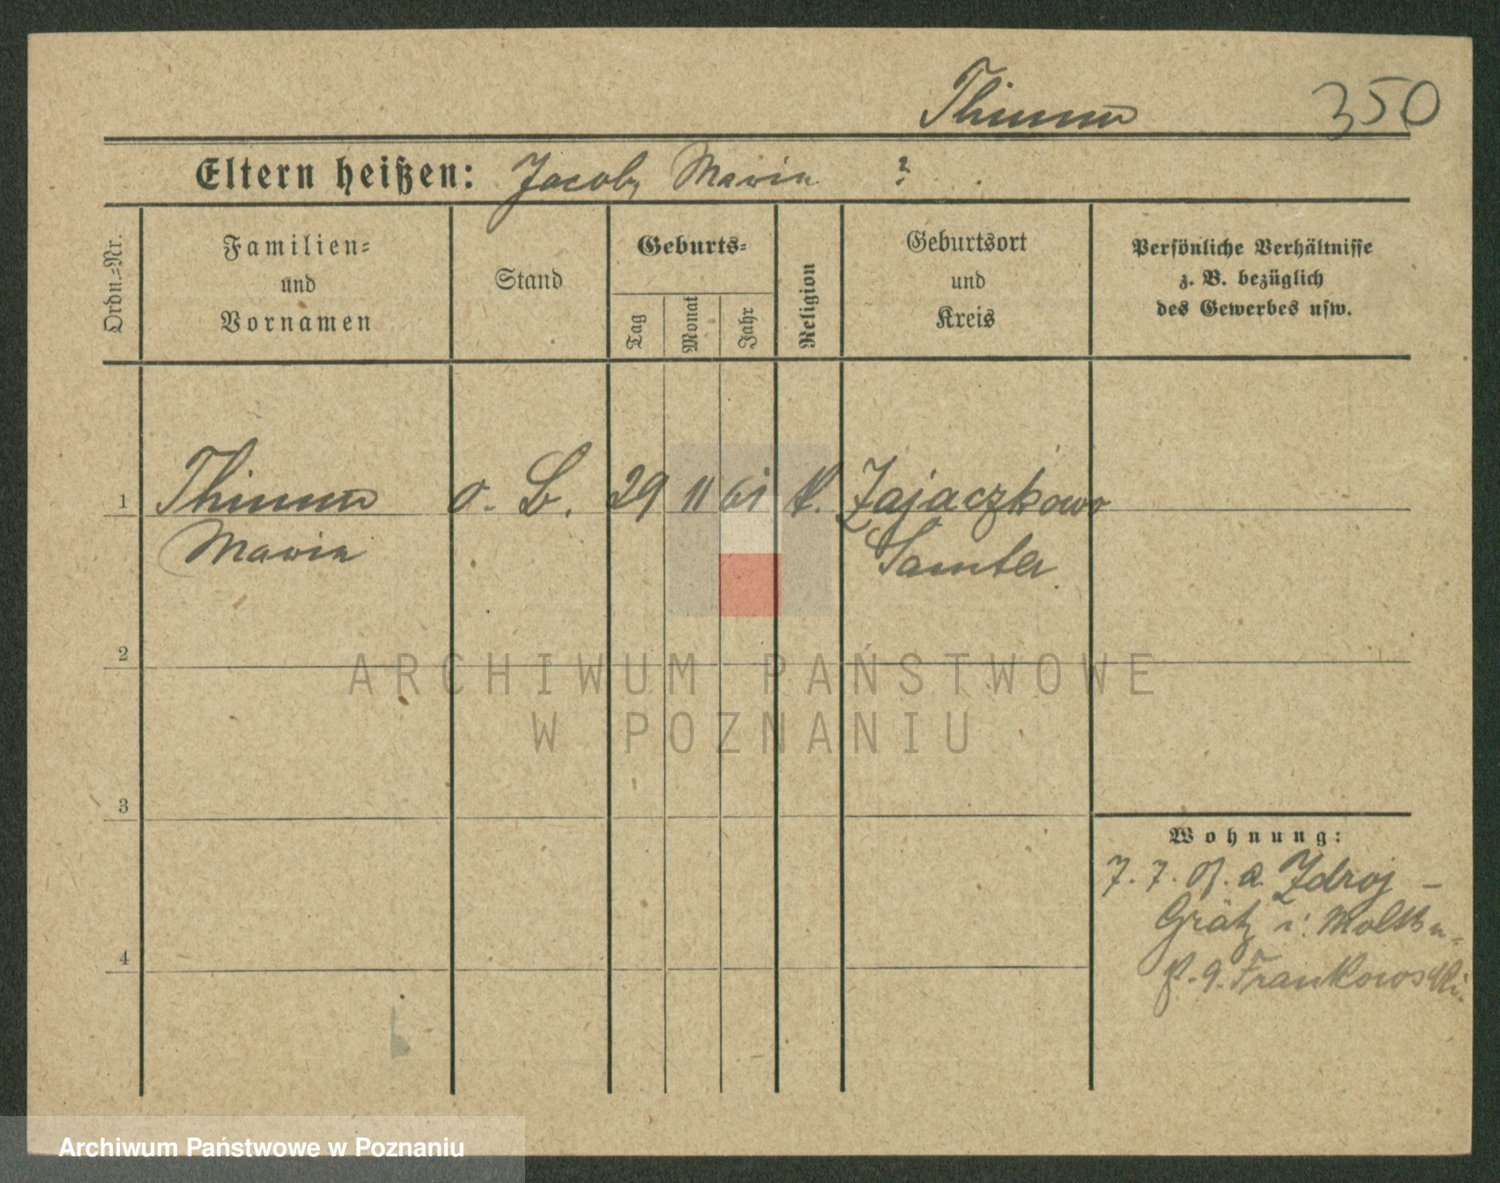 Thimm 350
Eltern heißen: Jacob, Maria ?
Ordn.=Nr.
Familien=
und
Vornamen
Stand
Geburts=
Tag
Monat
Jahr
Religion
Geburtsort
und
Kreis
Persönliche Verhältnisse
z. B. bezüglich
des Gewerbes usw.
1 Thimm o. B. 29 11 61 k. Zajaczkowo
Maria Samter
2
3
4
Wohnung:
7. 7. Zdroj –
Grätz
Frankowski
ARCHIWUM PAŃSTWOWE
W POZNANIU
Archiwum Państwowe w Poznaniu